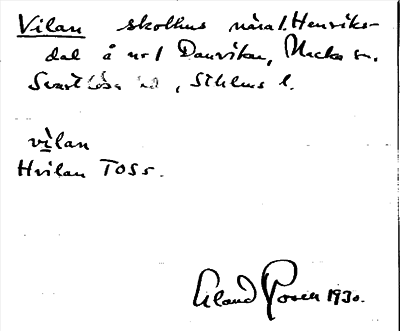 Vilan skolhus nära l. Henriks-
dal å nr 1 Danviken, Nacka sn.
Svartlösa hd, Sthlms l.
vìlan
Hvilan TOS 5.
Erland Rosell 1930.